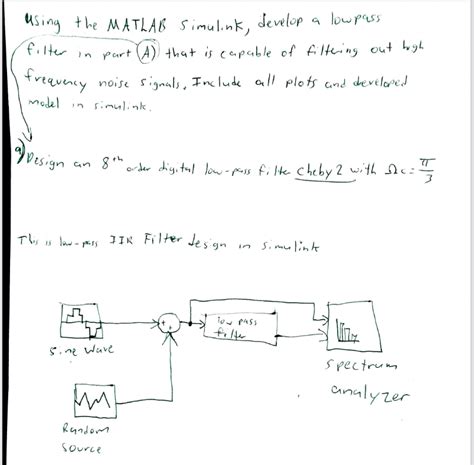 Using the MATLAB Simulink, develop a lowpass
filter in part (A) that is capable of filtering out high
frequency noise signals. Include all plots and developed
model in simulink.
a) Design an 8th order digital low-pass filter cheby2 with Ωc = π/3
This is low-pass IIR Filter design in simulink
low pass
filter
Sine wave
Spectrum
analyzer
Random
source